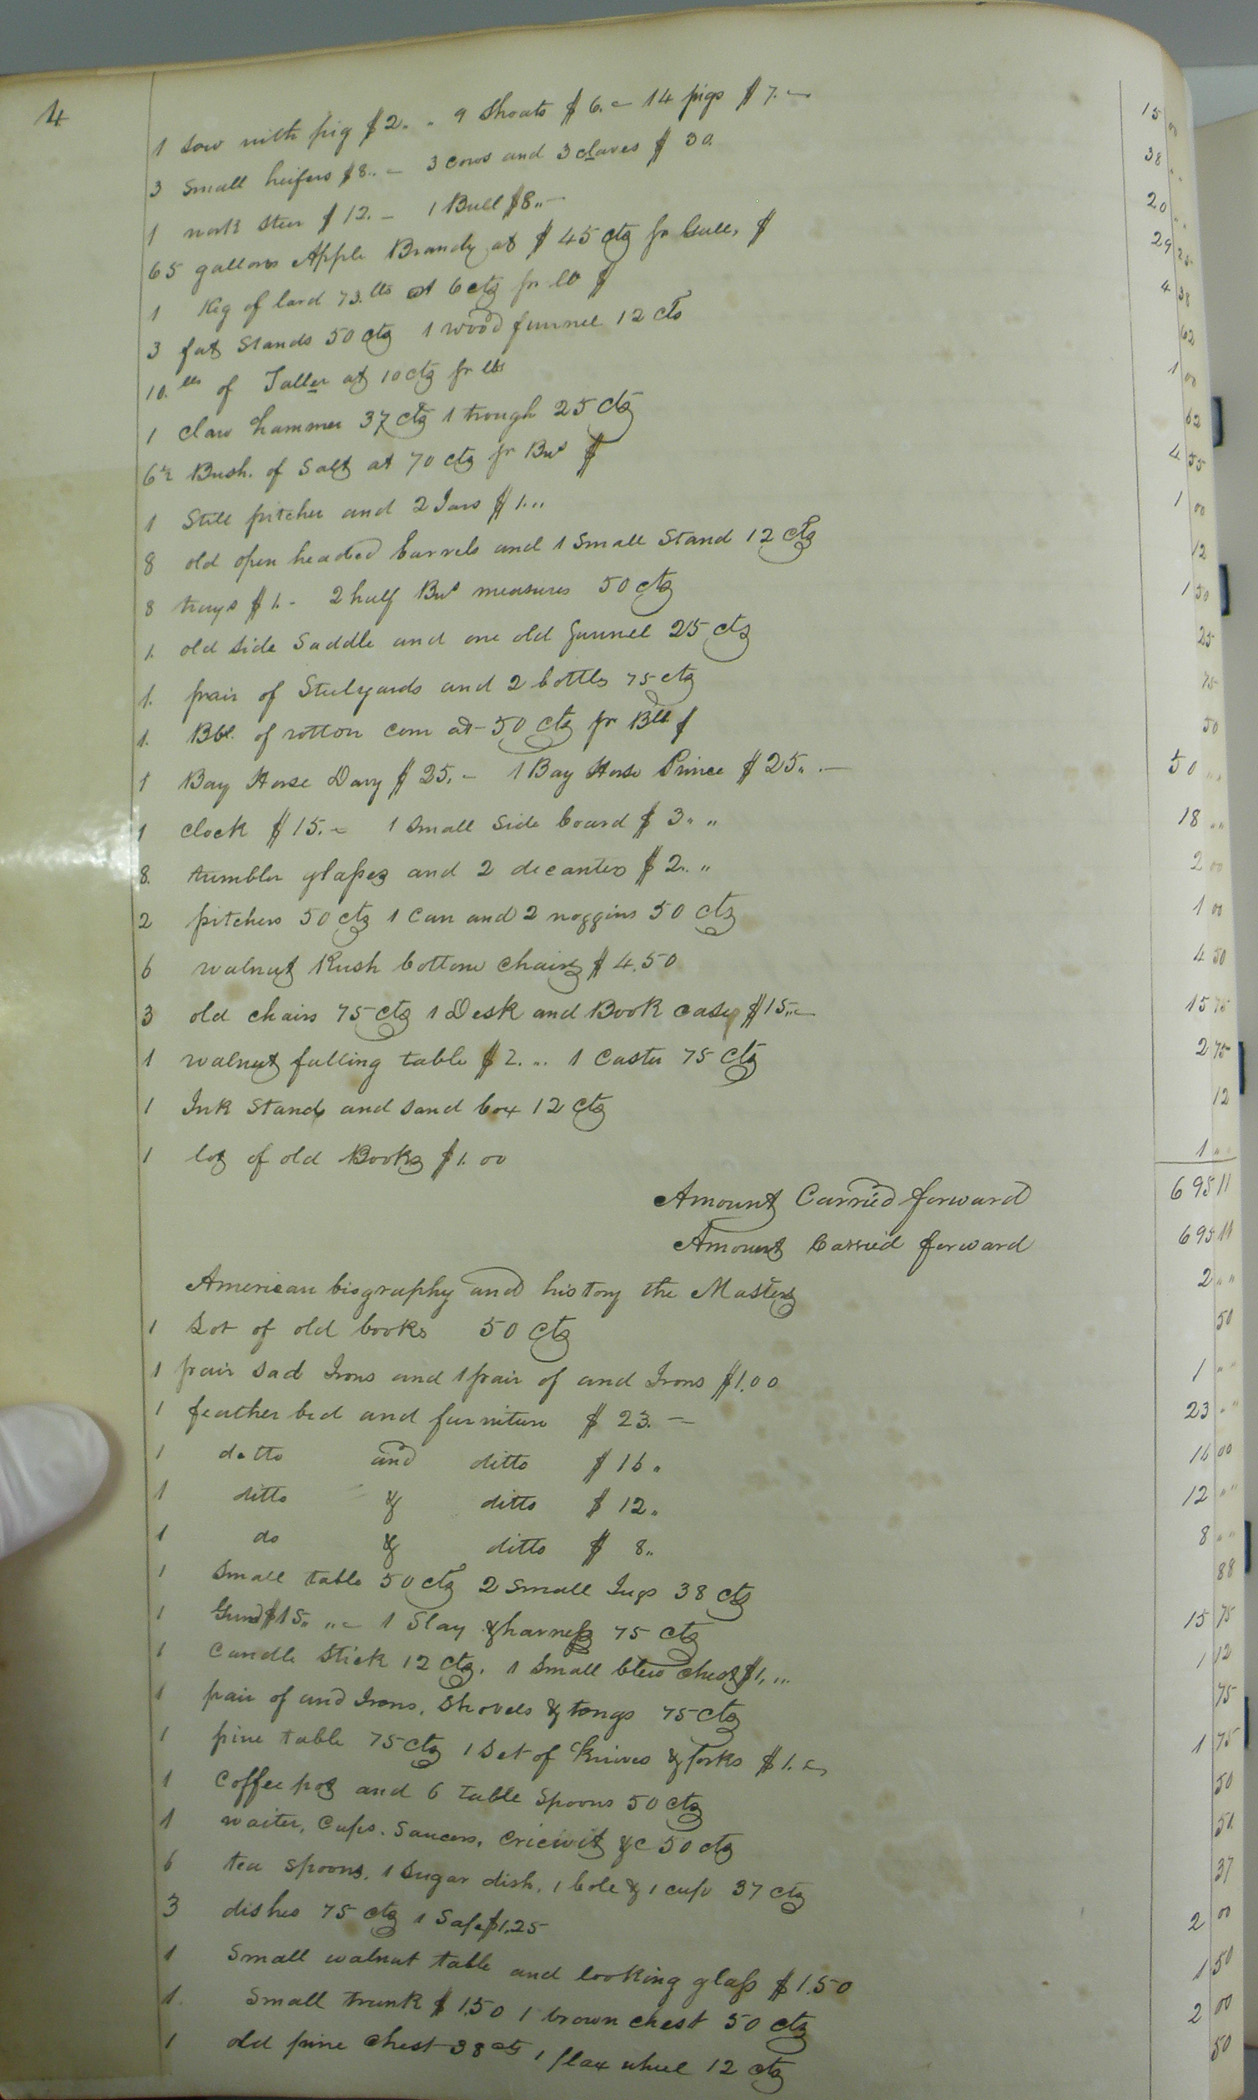 4
1 Sow with pig $2. . 9 Shoats $6. – 14 pigs $7. – 15 00
3 Small heifers $8.. – 3 cows and 3 claves $30. 38 ..
1 work Steer $12. – 1 Bull $8.. – 20 ..
65 gallons Apple Brandy at $45 cts pr Gall, $ 29 25
1 Keg of lard 73. lbs at 6 cts pr lb $ 4 38
3 fat Stands 50 cts 1 wood funnel 12 cts 62
10. lbs of Taller at 10 cts pr lbs 1 00
1 claw hammer 37 cts 1 trough 25 cts 62
6½ Bush. of Salt at 70 cts pr Bus $ 4 55
1 Still pitcher and 2 Jars $1... 1 00
8 old open headed barrels and 1 Small Stand 12 cts 12
8 trays $1. - 2 half Bus measures 50 cts 1 50
1. old side Saddle and one old funnel 25 cts 25
1. pair of Stulyards and 2 bottles 75 cts 75
1. Bbl. of rotton corn at 50 cts pr Bbl $ 50
1 Bay Horse Davy $25. – 1 Bay Horse Prince $25.. – 50 ..
1 clock $15. – 1 Small Side board $3. „ 18 ..
8. tumbler glasses and 2 decanters $2. „ 2 00
2 pitchers 50 cts 1 Can and 2 noggins 50 cts 1 00
6 walnut Rush bottom chairs $4.50 4 50
3 old chairs 75 cts 1 Desk and Book case $15.. – 15 75
1 walnut falling table $2. .. 1 Caster 75 cts 2 75
1 Ink Stand and sand box 12 cts 12
1 lot of old Books $1.00 1 ..
Amount Carried forward 695 11
Amount Carried forward 695 11
American biography and history the Masters 2 ..
1 Lot of old books 50 cts 50
1 pair Sad Irons and 1 pair of and Irons $1.00 1 ..
1 feather bed and furniture $23. – 23 ..
1 ditto and ditto $16. 16 00
1 ditto & ditto $12. 12 ..
1 do & ditto $8.. 8 ..
1 Small table 50 cts 2 Small Jugs 38 cts 88
1 Gun $15. .. – 1 Slay & harness 75 cts 15 75
1 Candle Stick 12 cts. 1 Small blew chest $1. ... 1 12
1 pair of and Irons, Shovels & tongs 75 cts 75
1 pine table 75 cts 1 Set of Knives & forks $1. – 1 75
1 Coffee pot and 6 table Spoons 50 cts 50
1 waiter, Cups. Saucers, &c 50 cts 50
6 tea spoons, 1 Sugar dish, 1 bole & 1 cup 37 cts 37
3 dishes 75 cts 1 Safe $1.25 2 00
1 Small walnut table and looking glass $1.50 1 50
1. Small trunk $1.50 1 brown chest 50 cts 2 00
1 old pine chest 38 cts 1 flax wheel 12 cts 50